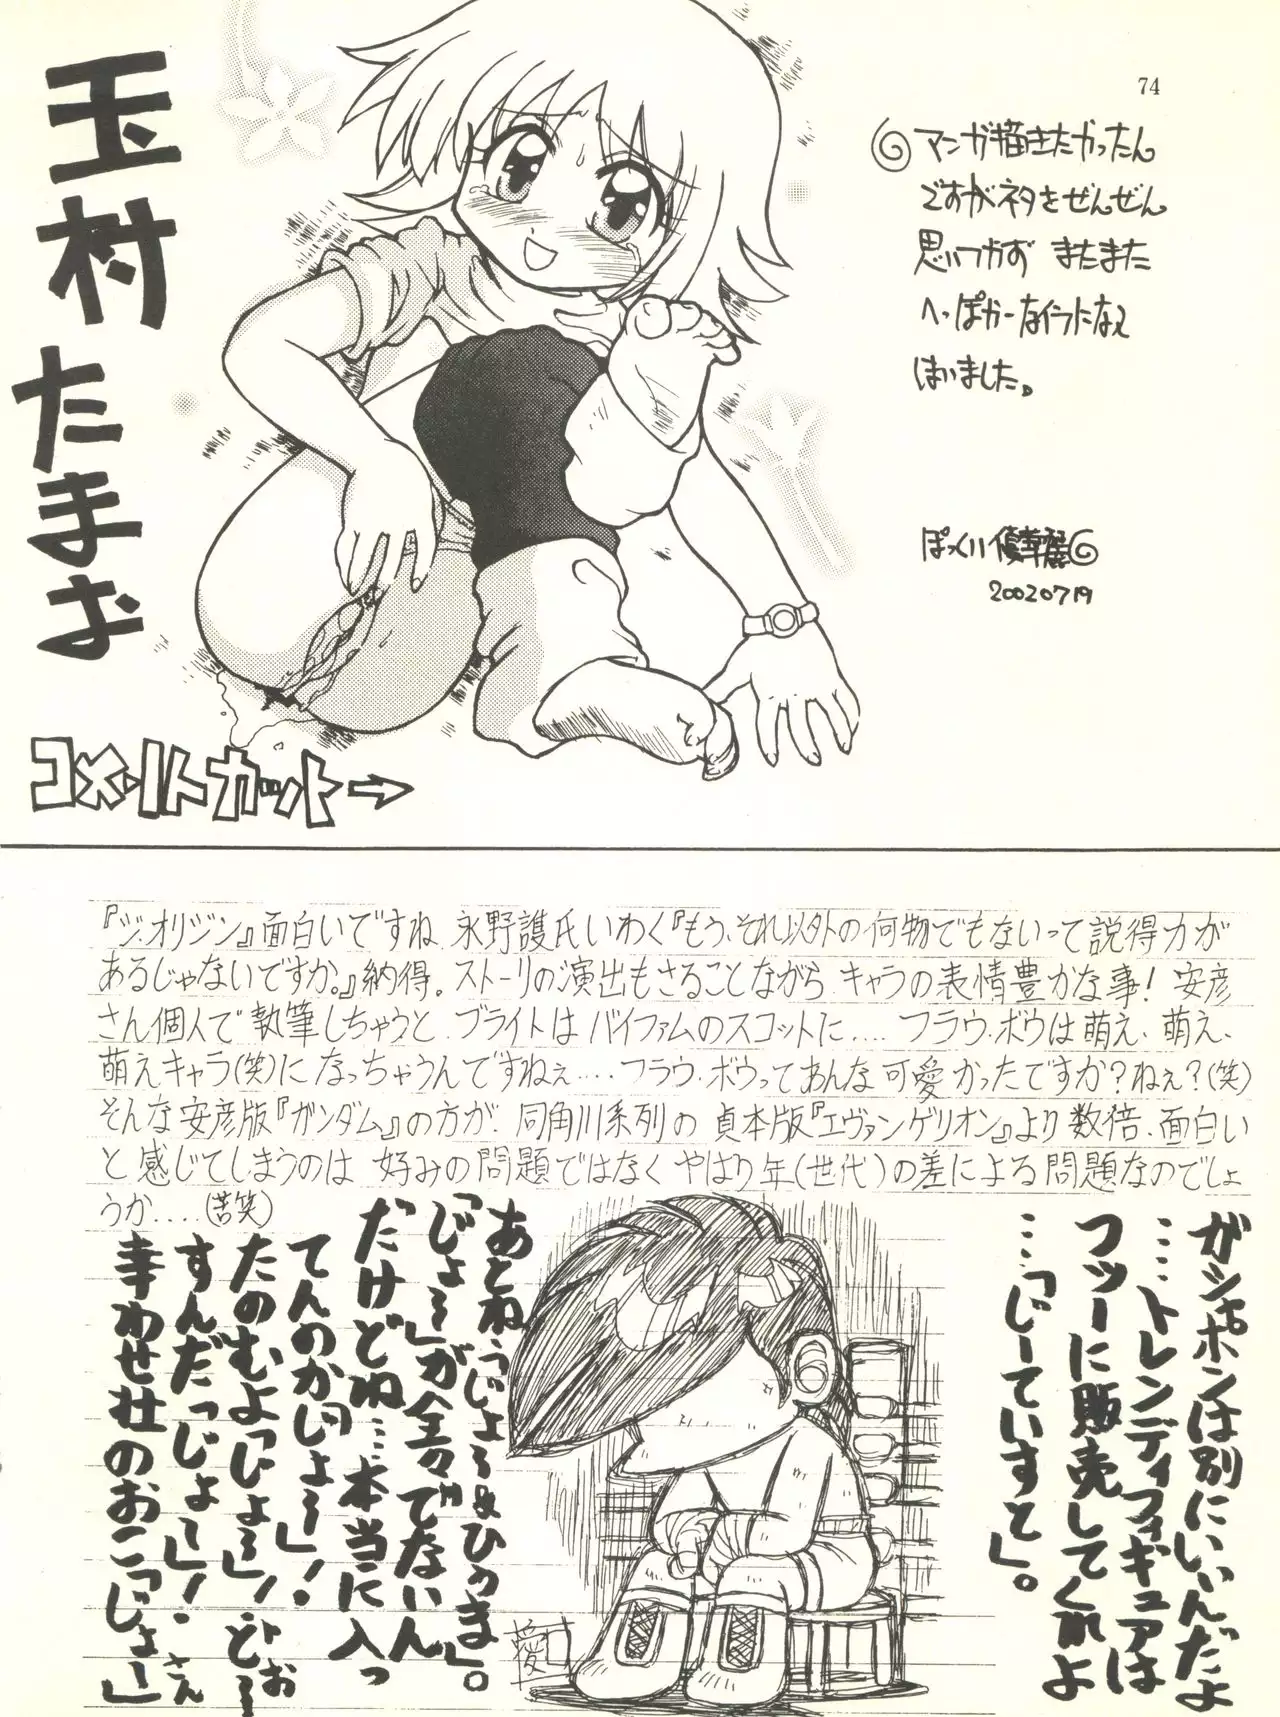 74
マンガ描きたかったん
ですがネタをぜんぜん
思いつかず またまた
へっぽかーなイラになって
しまいました。
20020719
玉村たまお
コメントカット→
『ジ・オリジン』面白いですね 永野護氏いわく『もう、それ以外の何物でもないって説得力が
あるじゃないですか。』納得。ストーリの演出もさることながら キャラの表情豊かな事! 安彦
さん個人で執筆しちゃうと ブライトは バイファムのスコットに.... フラウ・ボウは萌え、萌え、
萌えキャラ(笑)に なっちゃうんですねぇ.... フラウ・ボウってあんな可愛かったですか?ねぇ?(笑)
そんな安彦版『ガンダム』の方が 同角川系列の 貞本版『エヴァンゲリオン』より 数倍、面白い
と感じてしまうのは 好みの問題ではなく やはり年(世代)の差による問題なのでしょ
うか....(苦笑)
ガシャポンは別にいいんだよ
……トレンディフィギュアは
フツーに販売してくれよ
……「じーていすと」。
あとね、うじょ〜&ひのま」。
「じょ〜」が全々でないん
だけどね……本当に入っ
てんのかじょ〜」!
たのむよ「じょ〜」!とぉ〜
すんだっじょ〜」!さん
幸わせ壮のおこっじょ〜」